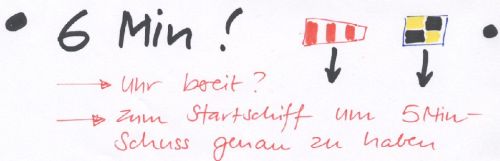 6 Min !
→ Uhr bereit ?
→ zum Startschiff um 5 Min-
Schuss genau zu haben